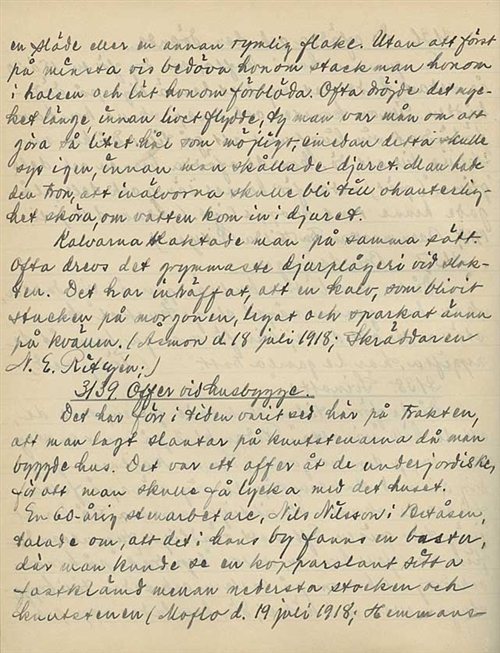 en släde eller en annan rymlig flake. Utan att först
på minsta vis bedöva honom stack man honom
i halsen och lät honom förblöda. Ofta dröjde det myc-
ket länge, innan livet flydde, ty man var mån om att
göra så litet hål som möjligt, emedan detta skulle
sys igen, innan man skållade djuret. Man hade
den tron, att inälvorna skulle bli till ohanterlig-
het sköra, om vatten kom in i djuret.
Kalvarna slaktade man på samma sätt.
Ofta drevs det grymmaste djurplågeri vid slak-
ten. Det har inträffat, att en kalv, som blivit
stucken på morgonen, legat och sparkat ännu
på kvällen. (Åsmon d. 18 juli 1918; Skräddaren
N. E.
3/39 Offer vid husbygge.
Det har förr i tiden varit sed här på trakten,
att man lagt slantar på knutstenarna då man
byggde hus. Det var ett offer åt de underjordiska,
för att man skulle få lycka med det huset.
En 60-årig stenarbetare, Nils Nilsson i
talade om, att det i hans by fanns en bastu,
där man kunde se en kopparslant sitta
fastklämd mellan nedersta stocken och
knutstenen (Moflo d. 19 juli 1918; Hemmans-